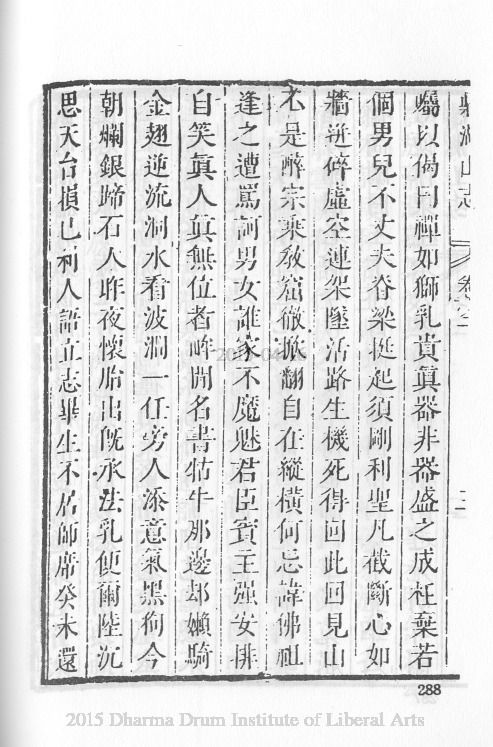 鼎湖山志 卷之二
囑以偈曰禪如獅乳貴眞器非器盛之成枉棄若
個男兒不丈夫脊梁挺起須剛利聖凡截斷心如
牆迸碎虛空連架墜活路生機死得回此回見山
不是醉宗乘敎窟徹掀翻自在縱橫何忌諱佛祖
逢之遭罵訶男女誰家不魔魅君臣賓主强安排
自笑眞人眞無位者畔開名書牯牛那邊却嬾騎
金翅逆流洞水看波瀾一任旁人添意氣黑狗今
朝爛銀蹄石人昨夜懷胎出旣承法乳便爾陸沉
思天台損己利人語立志畢生不居師席癸未還
288
2015 Dharma Drum Institute of Liberal Arts